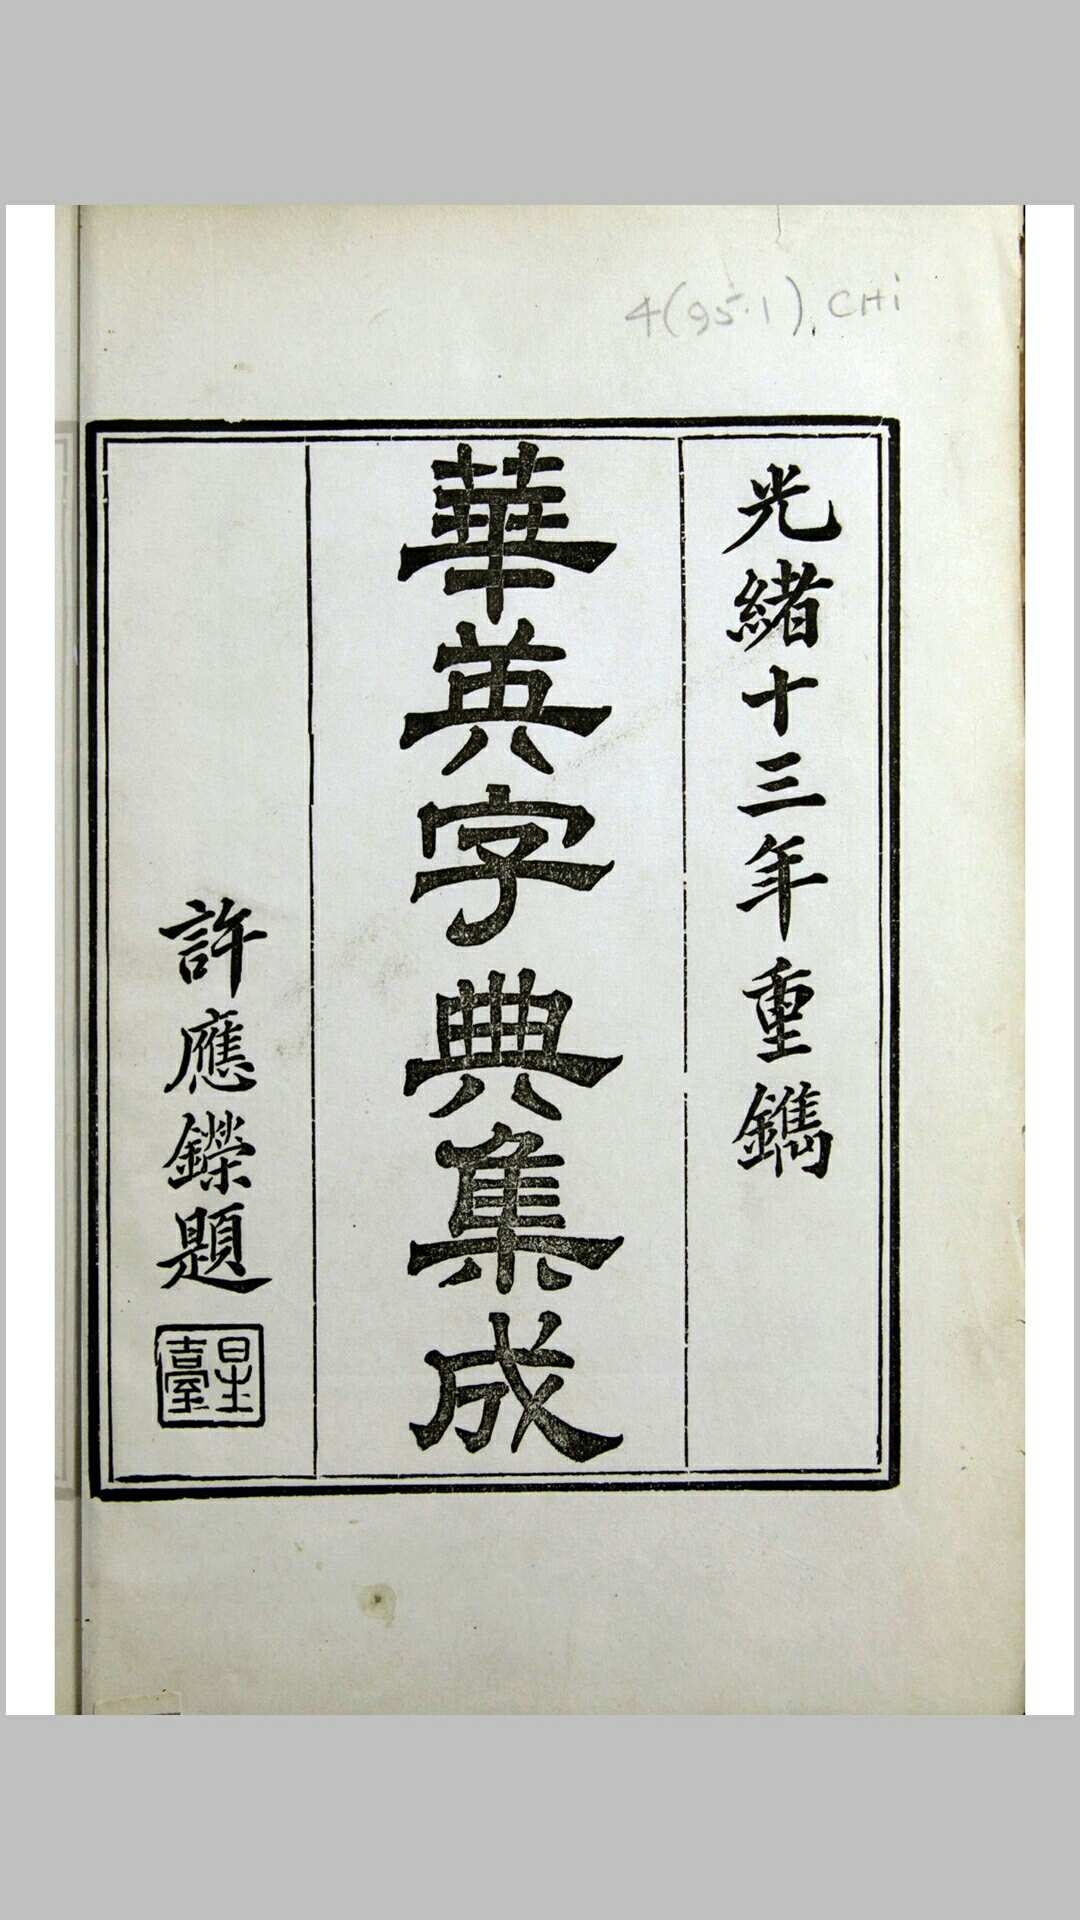 4(95.1), CHi
光緒十三年重鐫
華英字典集成
許應鑅題
星臺